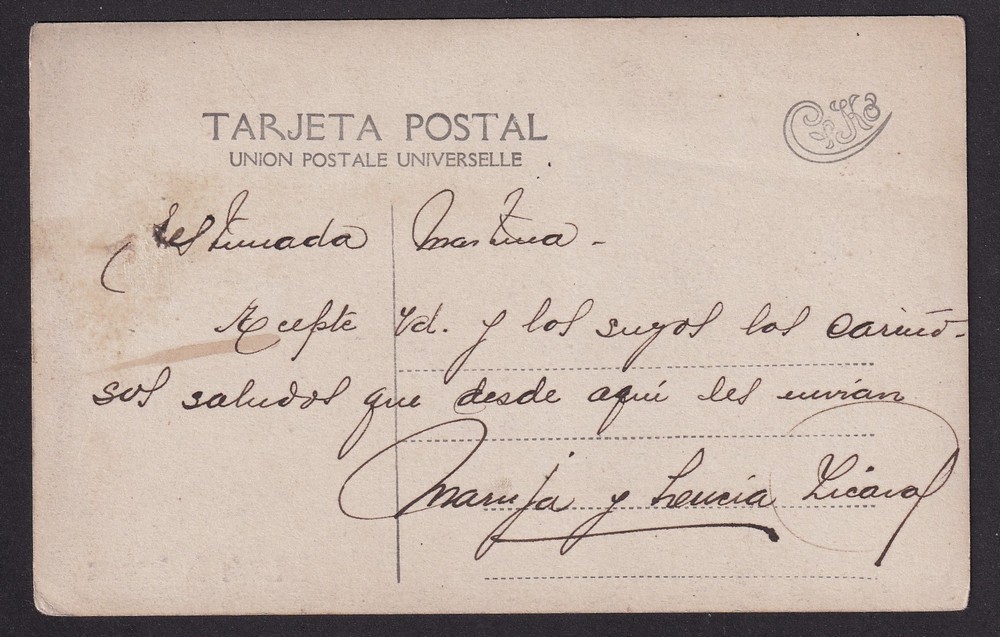 TARJETA POSTAL
UNION POSTALE UNIVERSELLE
Estimada Martina -
Acepte Vd. y los suyos los cariño-
sos saludos que desde aquí les envian
Maruja y Lucia